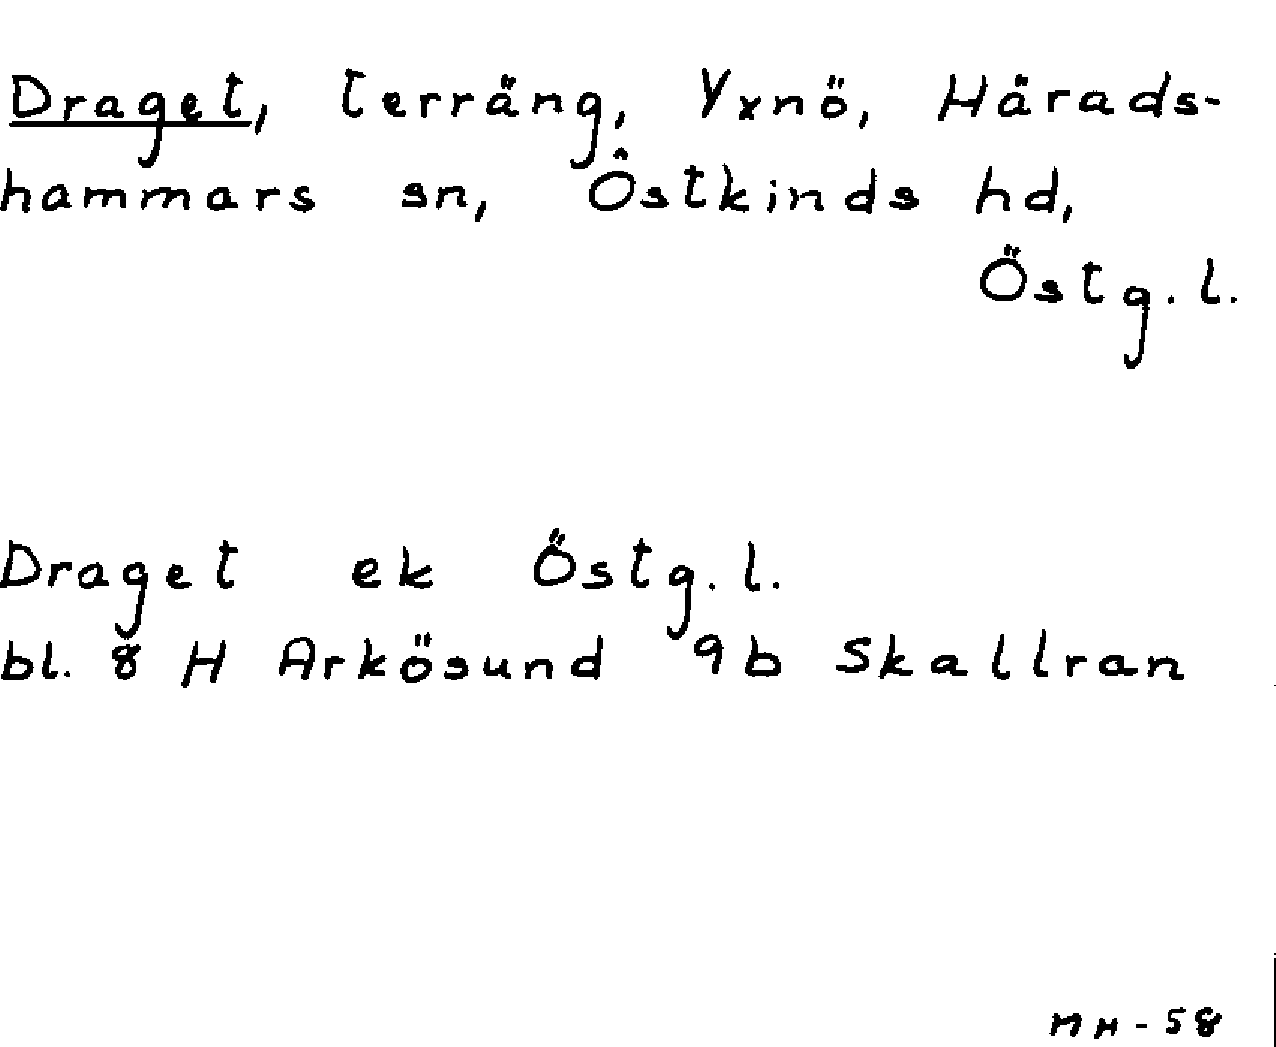 Draget, terräng, Yxnö, Härads-
hammars sn, Östkinds hd,
Östg.l.
Draget ek Östg.l.
bl. 8 H Arkösund 9b Skallran
MH-58